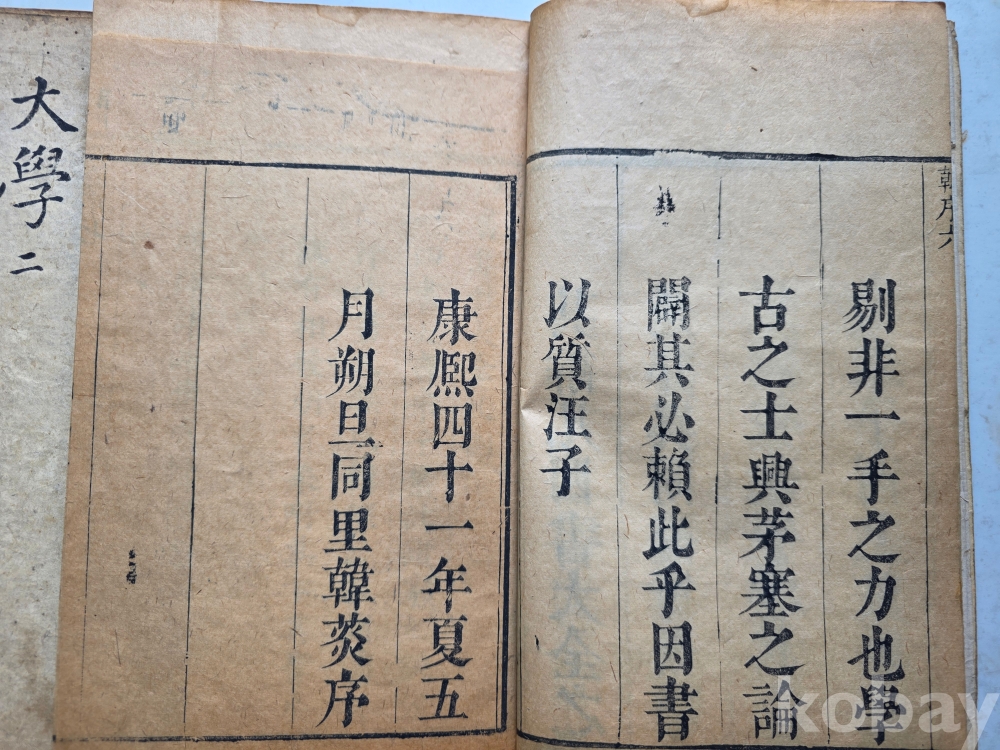 韓序六
剔非一手之力也學
古之士興茅塞之論
闢其必賴此乎因書
以質汪子
康熙四十一年夏五
月朔旦同里韓菼序
大學二
kobay